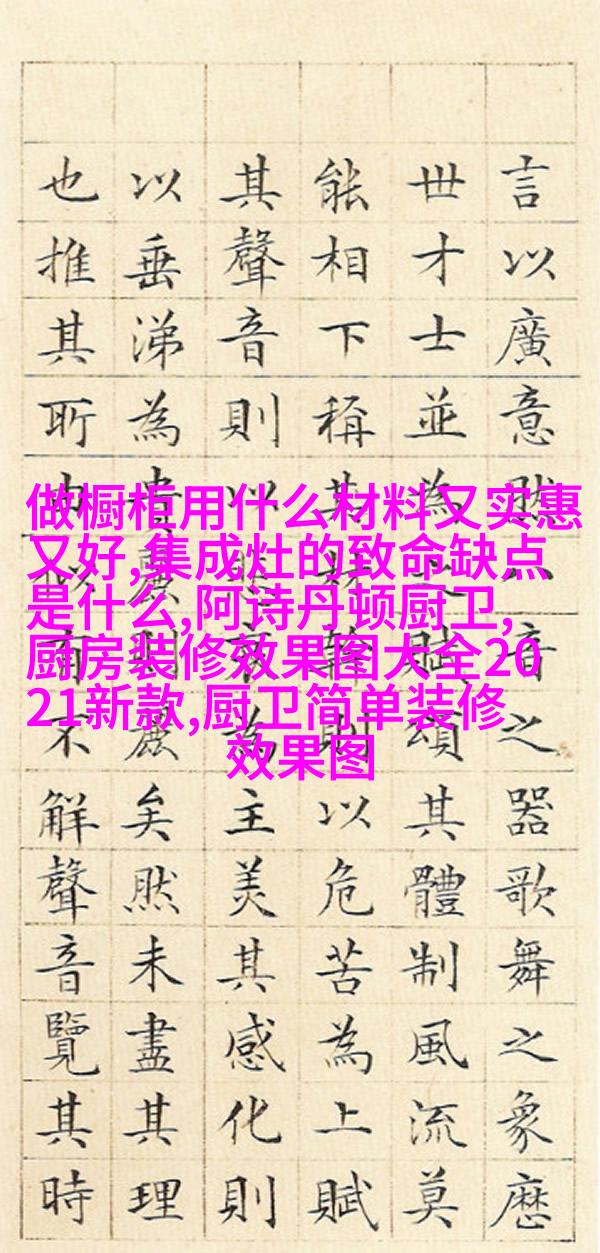 言以廣意然音之器歌舞之象歷
世才士並為賦頌其體制風流莫
能相下稱其則以危苦為上賦
其聲音則以為主美其感化則
以垂涕為貴麗則麗矣然未盡其理
也推其所有不解聲音覽其時
做橱柜用什么材料又实惠
又好,集成灶的致命缺点
是什么,阿诗丹顿厨卫,
厨房装修效果图大全20
21新款,厨卫简单装修
效果图